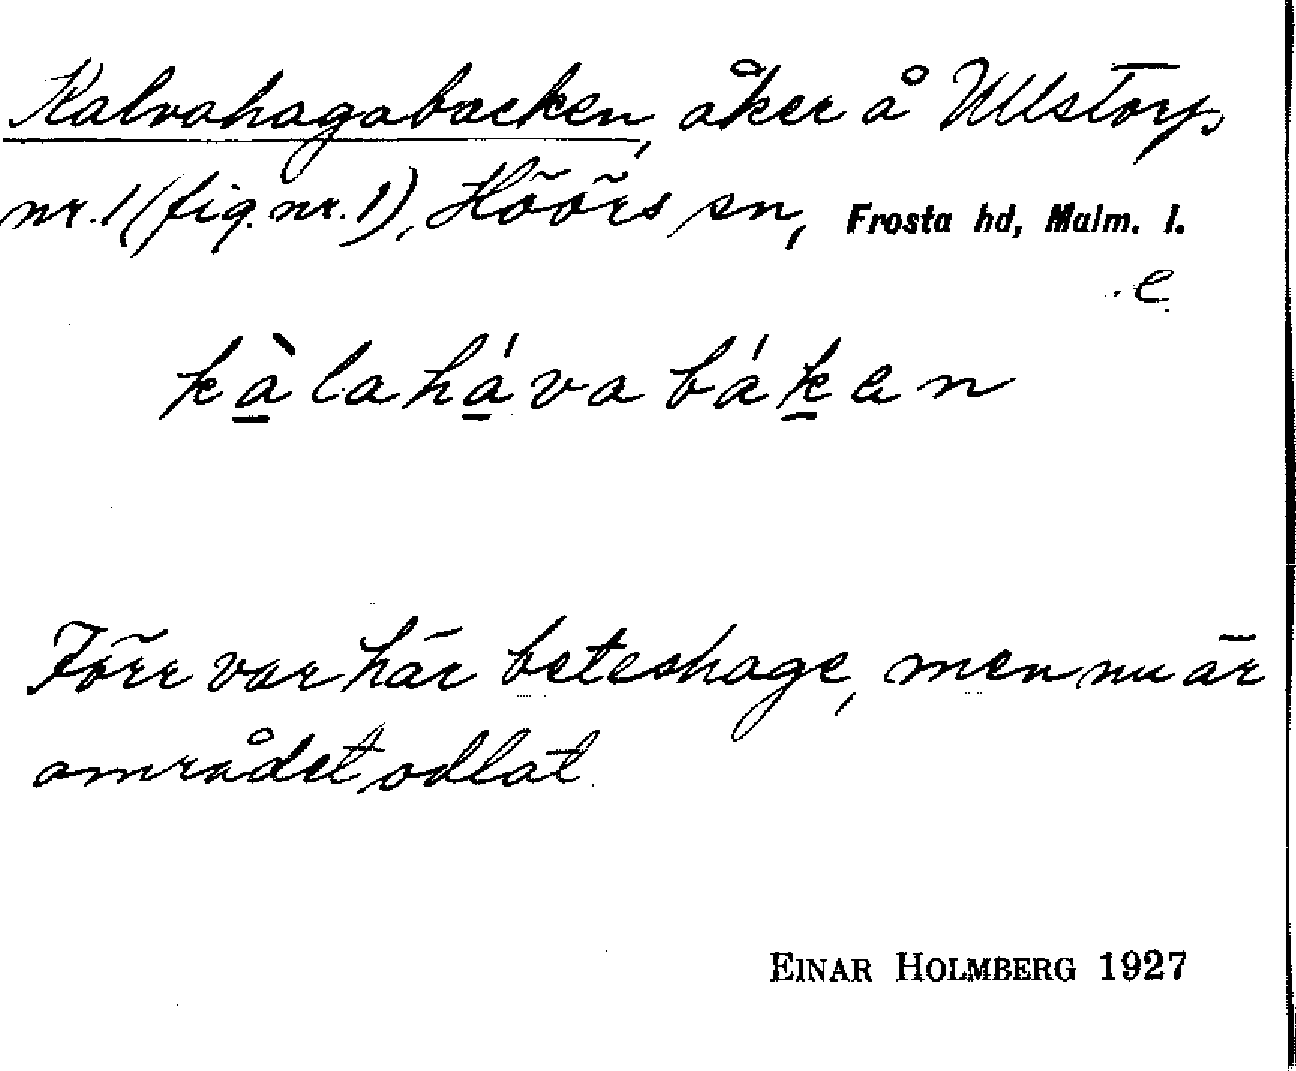 Kalvahagabacken, åker å Ullstorp
nr. 1 (fig. nr. 1), Höörs sn, Frosta hd, Malm. l.
. e
kàlaháva báken
Förr var här beteshage, men nu är
området odlat.
EINAR HOLMBERG 1927